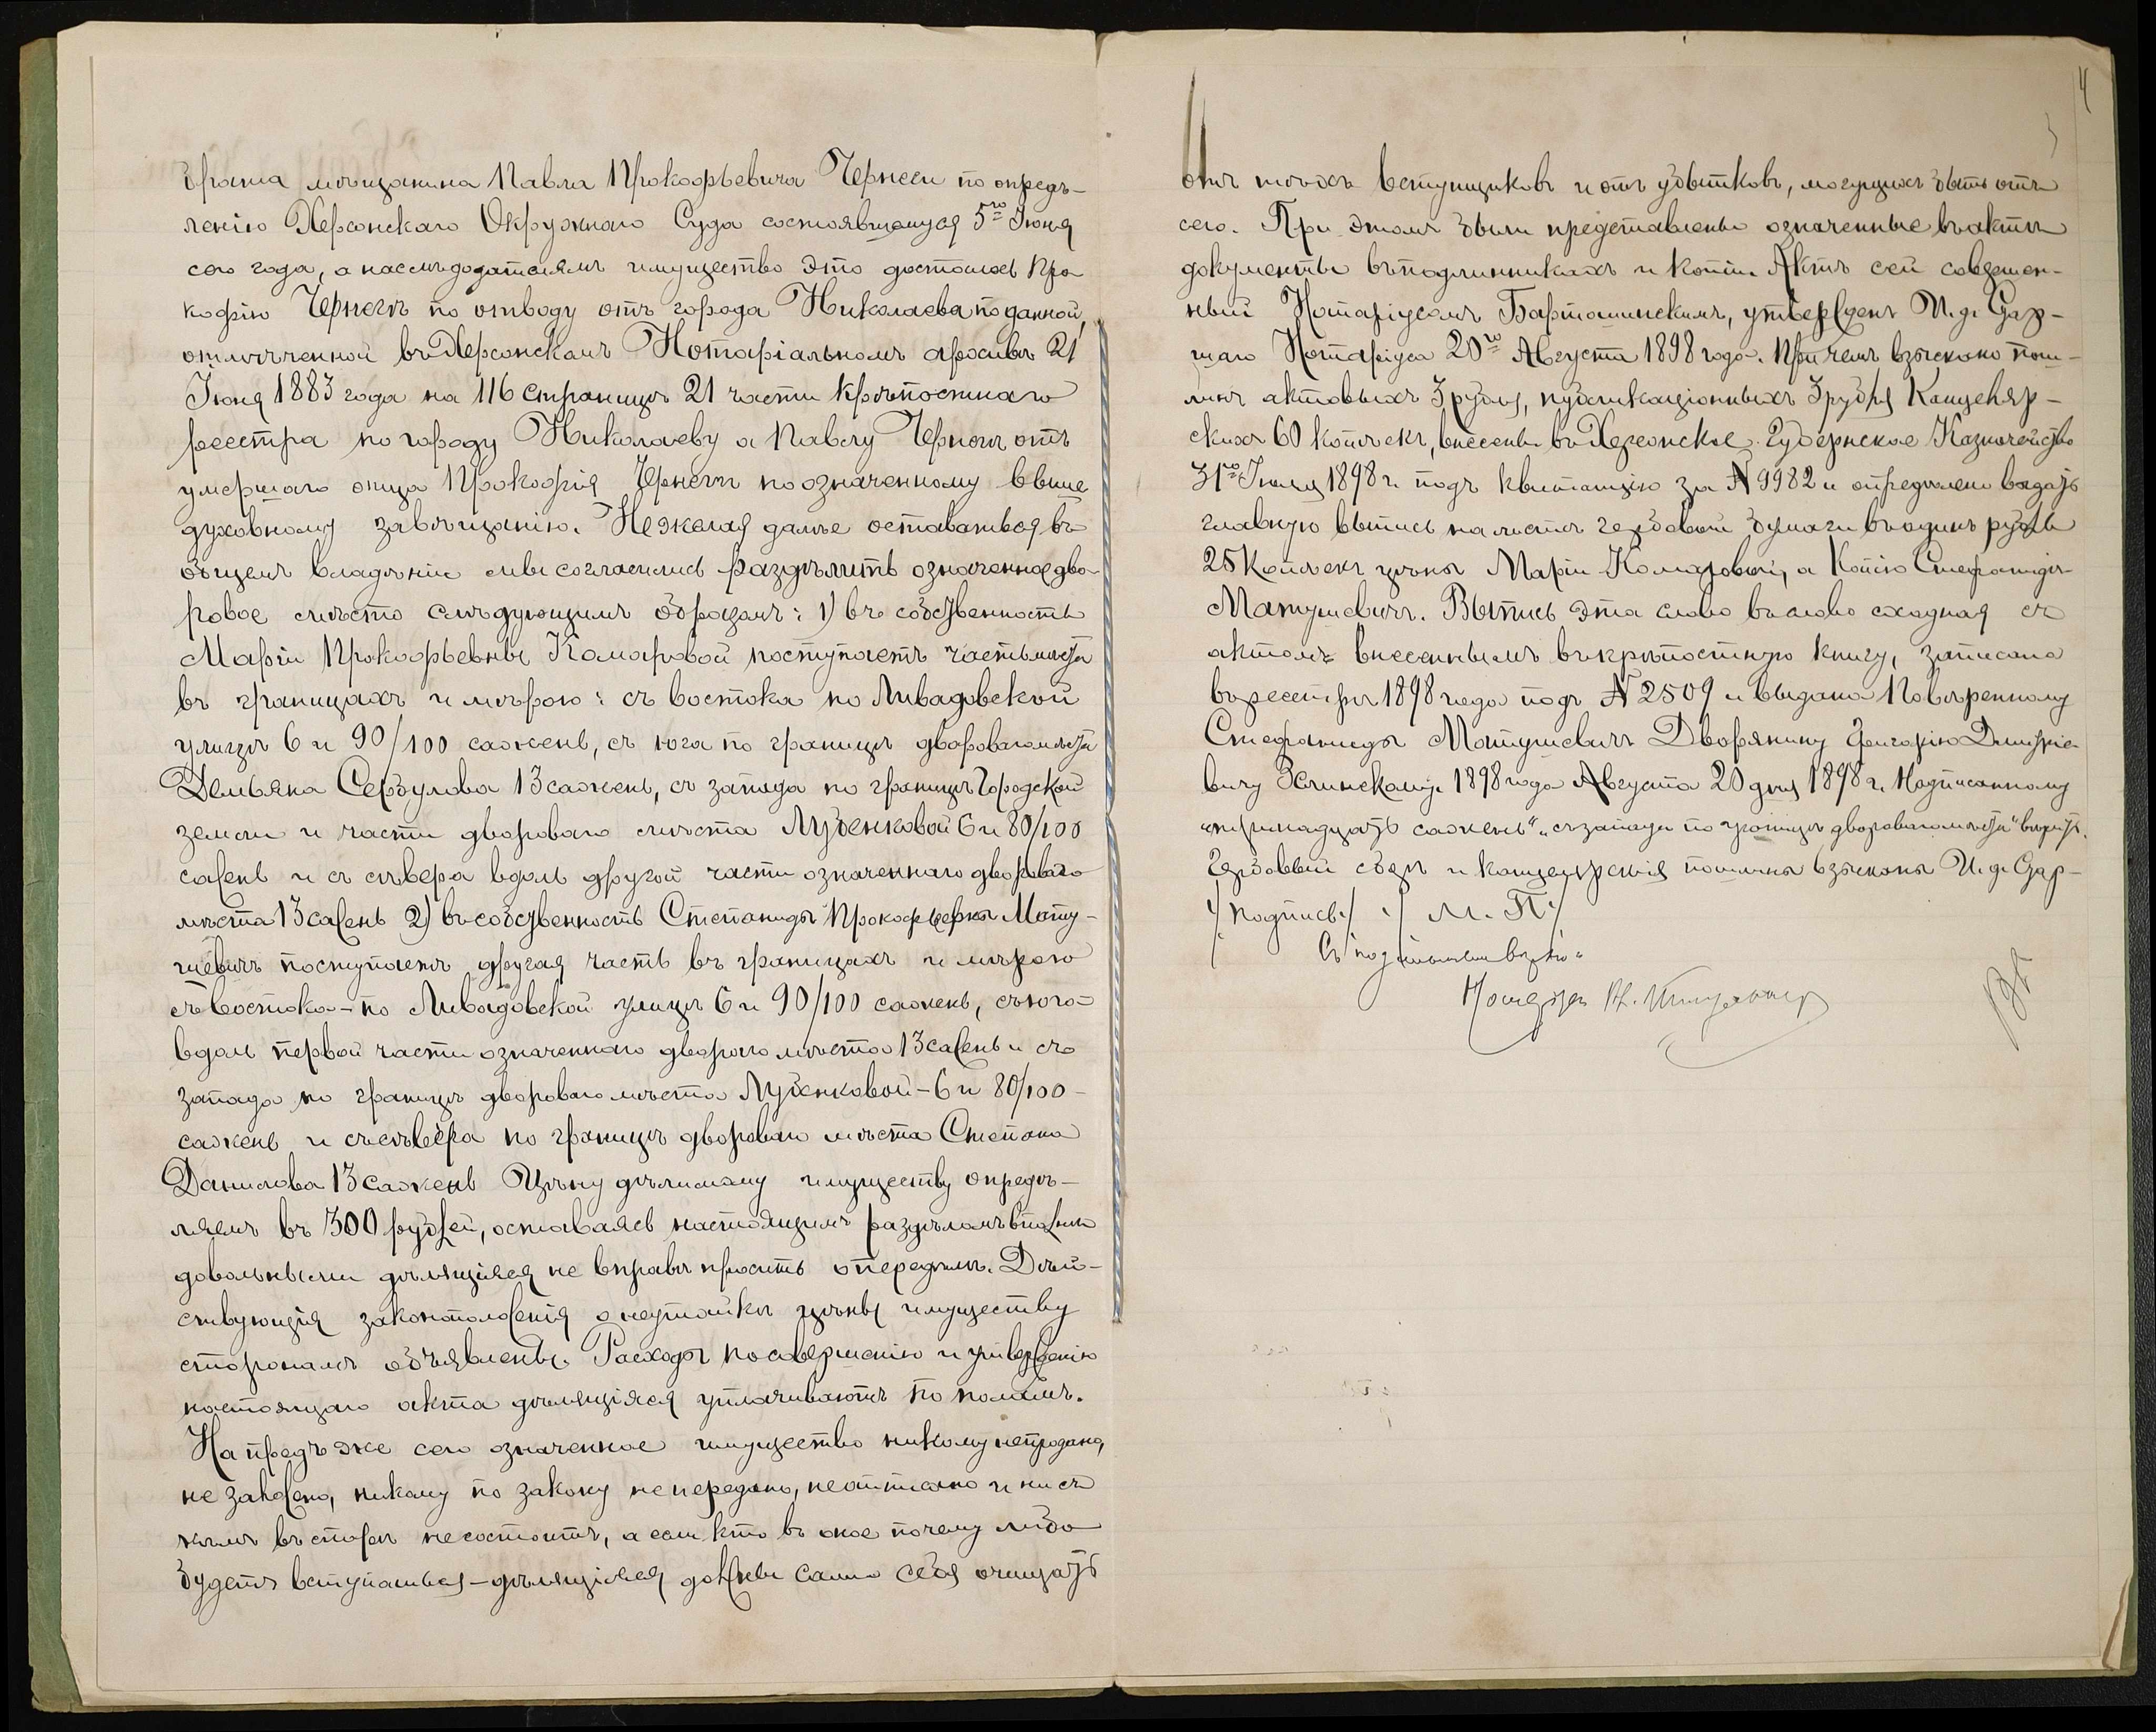 брата мѣщанина Павла Прокофьевича Чернеги по опредѣ-
ленію Херсонскаго Окружнаго Суда состоявшемуся 5го Іюня
сего года, а наслѣдодателямъ имущество это досталось Про
кофію Чернегѣ по отводу отъ города Николаева по данной,
отмѣченной въ Херсонскомъ Нотаріальномъ архивѣ 21
Іюня 1883 года на 116 страницѣ 21 части крѣпостнаго
реестра по городу Николаеву а Павлу Чернегѣ отъ
умершаго отца Прокофія Чернеги по означенному выше
духовному завѣщанію. Не желая далѣе оставаться въ
общемъ владѣніи мы согласились раздѣлить означенное дво-
ровое мѣсто слѣдующимъ образомъ: 1) въ собственность
Маріи Прокофьевны Комаровой поступаетъ часть мѣста
въ границахъ и мѣрою: съ востока по Ливадовской
улицѣ 6 и 90/100 сажень, съ юга по границѣ двороваго мѣста
Демьяна Сербулова 13 сажень, съ запада по границѣ Городской
земли и части двороваго мѣста Лубенковой 6 и 80/100
сажень и съ сѣвера вдоль другой части означеннаго двороваго
мѣста 13 сажень 2) въ собственность Степаниды Прокофьевны Мату-
шевичъ поступаетъ другая часть въ границахъ и мѣрою
съ востока - по Ливадовской улицѣ 6 и 90/100 сажень, съ юга
вдоль первой части означеннаго двороваго мѣста 13 сажень и съ
запада по границѣ двороваго мѣста Лубенковой - 6 и 80/100 -
сажень и съ сѣвера по границѣ двороваго мѣста Степана
Данилова 13 сажень Цѣну дѣлимому имуществу опредѣ-
ляемъ въ 300 рублей, оставаясь настоящимъ раздѣломъ вполнѣ
довольными дѣлящіяся не вправѣ просить о передѣлѣ. Дѣй-
ствующія законоположенія о неутайкѣ цѣны имуществу
сторонамъ объявлены. Расходы по совершенію и утвержденію
настоящаго акта дѣлящіяся уплачиваютъ по поламъ.
На предъ же сего означенное имущество никому непродано,
не заложено, никому по закону не передано, неотписано и ни съ
кѣмъ въ спорѣ несостоитъ, а если кто въ оное почему либо
будетъ вступаться - дѣлящіяся должны сами себя очищать
отъ тѣхъ вступщиковъ и отъ убытковъ, могущихъ быть отъ
сего. При этомъ были представлены означенные въ актѣ
документы въ подлинникахъ и копіи Актъ сей совершен-
ный Нотаріусомъ Бартошинскимъ, утвержденъ И. д. Стар-
шаго Нотаріуса 20го Августа 1898 года. При чемъ взыскано пош-
линъ актовыхъ 3 рубля, публикаціонныхъ 3 рубля Канцеляр-
скихъ 60 копѣекъ, внесены въ Херсонское Губернское Казначейство
31го Іюля 1898 г. подъ квитанцію за № 9982 и опредѣлено выдать
главную выпись на листѣ гербовой бумаги въ одинъ рубль
25 копѣекъ цѣны Маріи Комаровой, а копію Стефанидѣ
Матушевичъ. Выпись эта слово въ слово сходная съ
актомъ внесеннымъ въ крѣпостную книгу, записана
въ реестрѣ 1898 года подъ № 2509 и выдана Повѣренному
Стефаниды Матушевичъ Дворянину Григорію Дмитріе-
вичу 1898 года Августа 20 дня 1898 г. Надписанному
„тринадцать сажень“ „съ запада по границѣ двороваго мѣста“ вѣрить.
Гербовый сборъ и канцелярскія пошлины взысканы И. д. Стар-
/подпись/ / М. П./
Съ подлиннымъ вѣрно:
Нотаріусъ